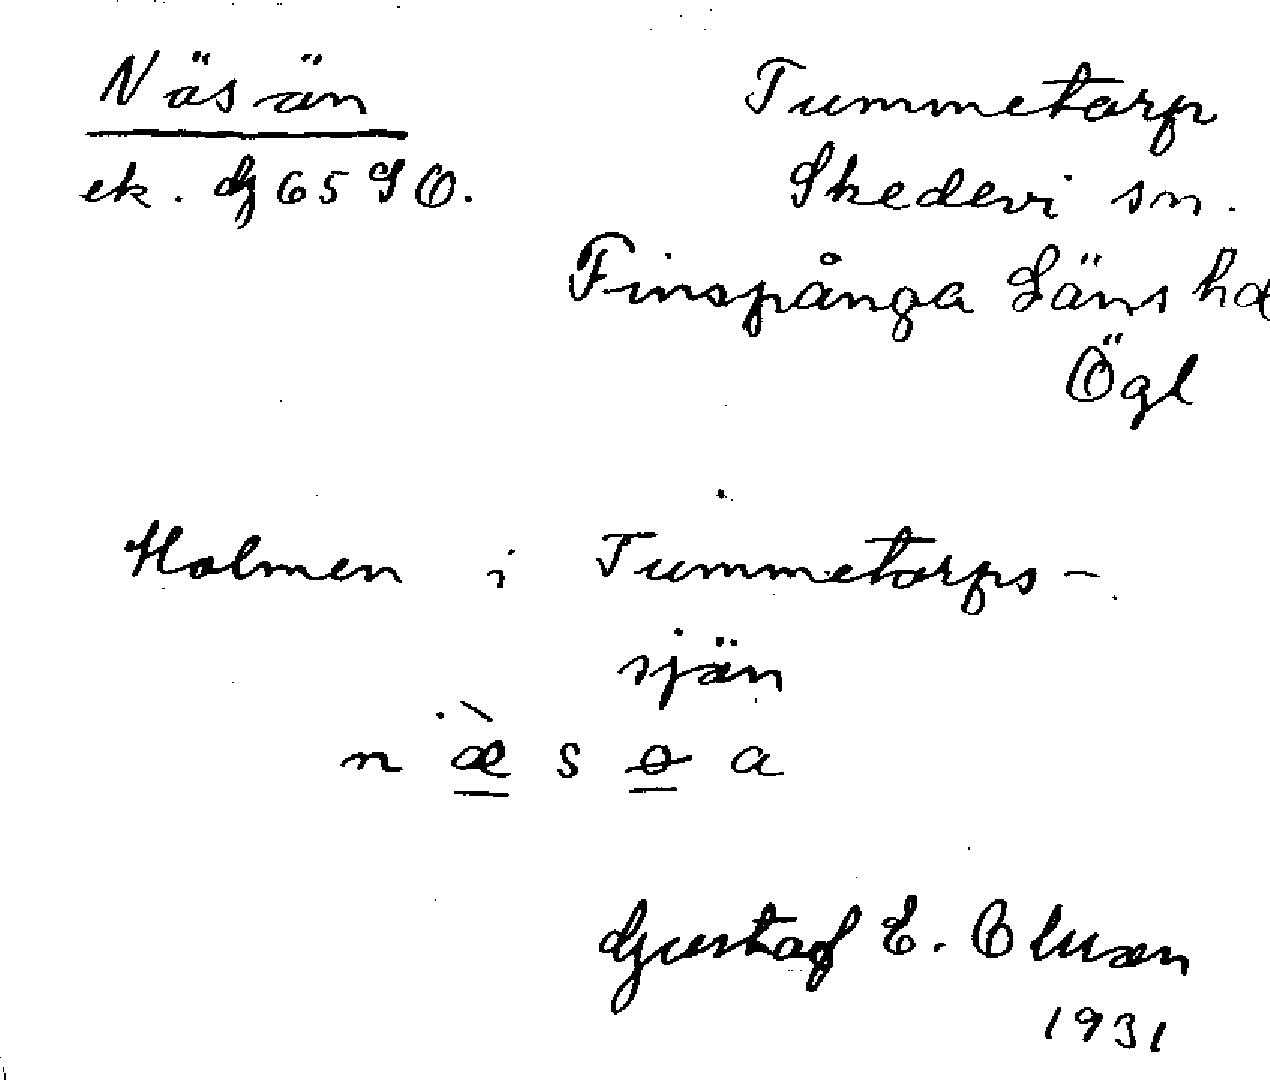 Näsän
ek. G 65 SO.
Tummetorp
Skedevi sn.
Finspånga Läns hd
Ögl
Holmen i Tummetorps-
sjön
n æ̀ s ɵ a
Gustaf E. Oluson
1931